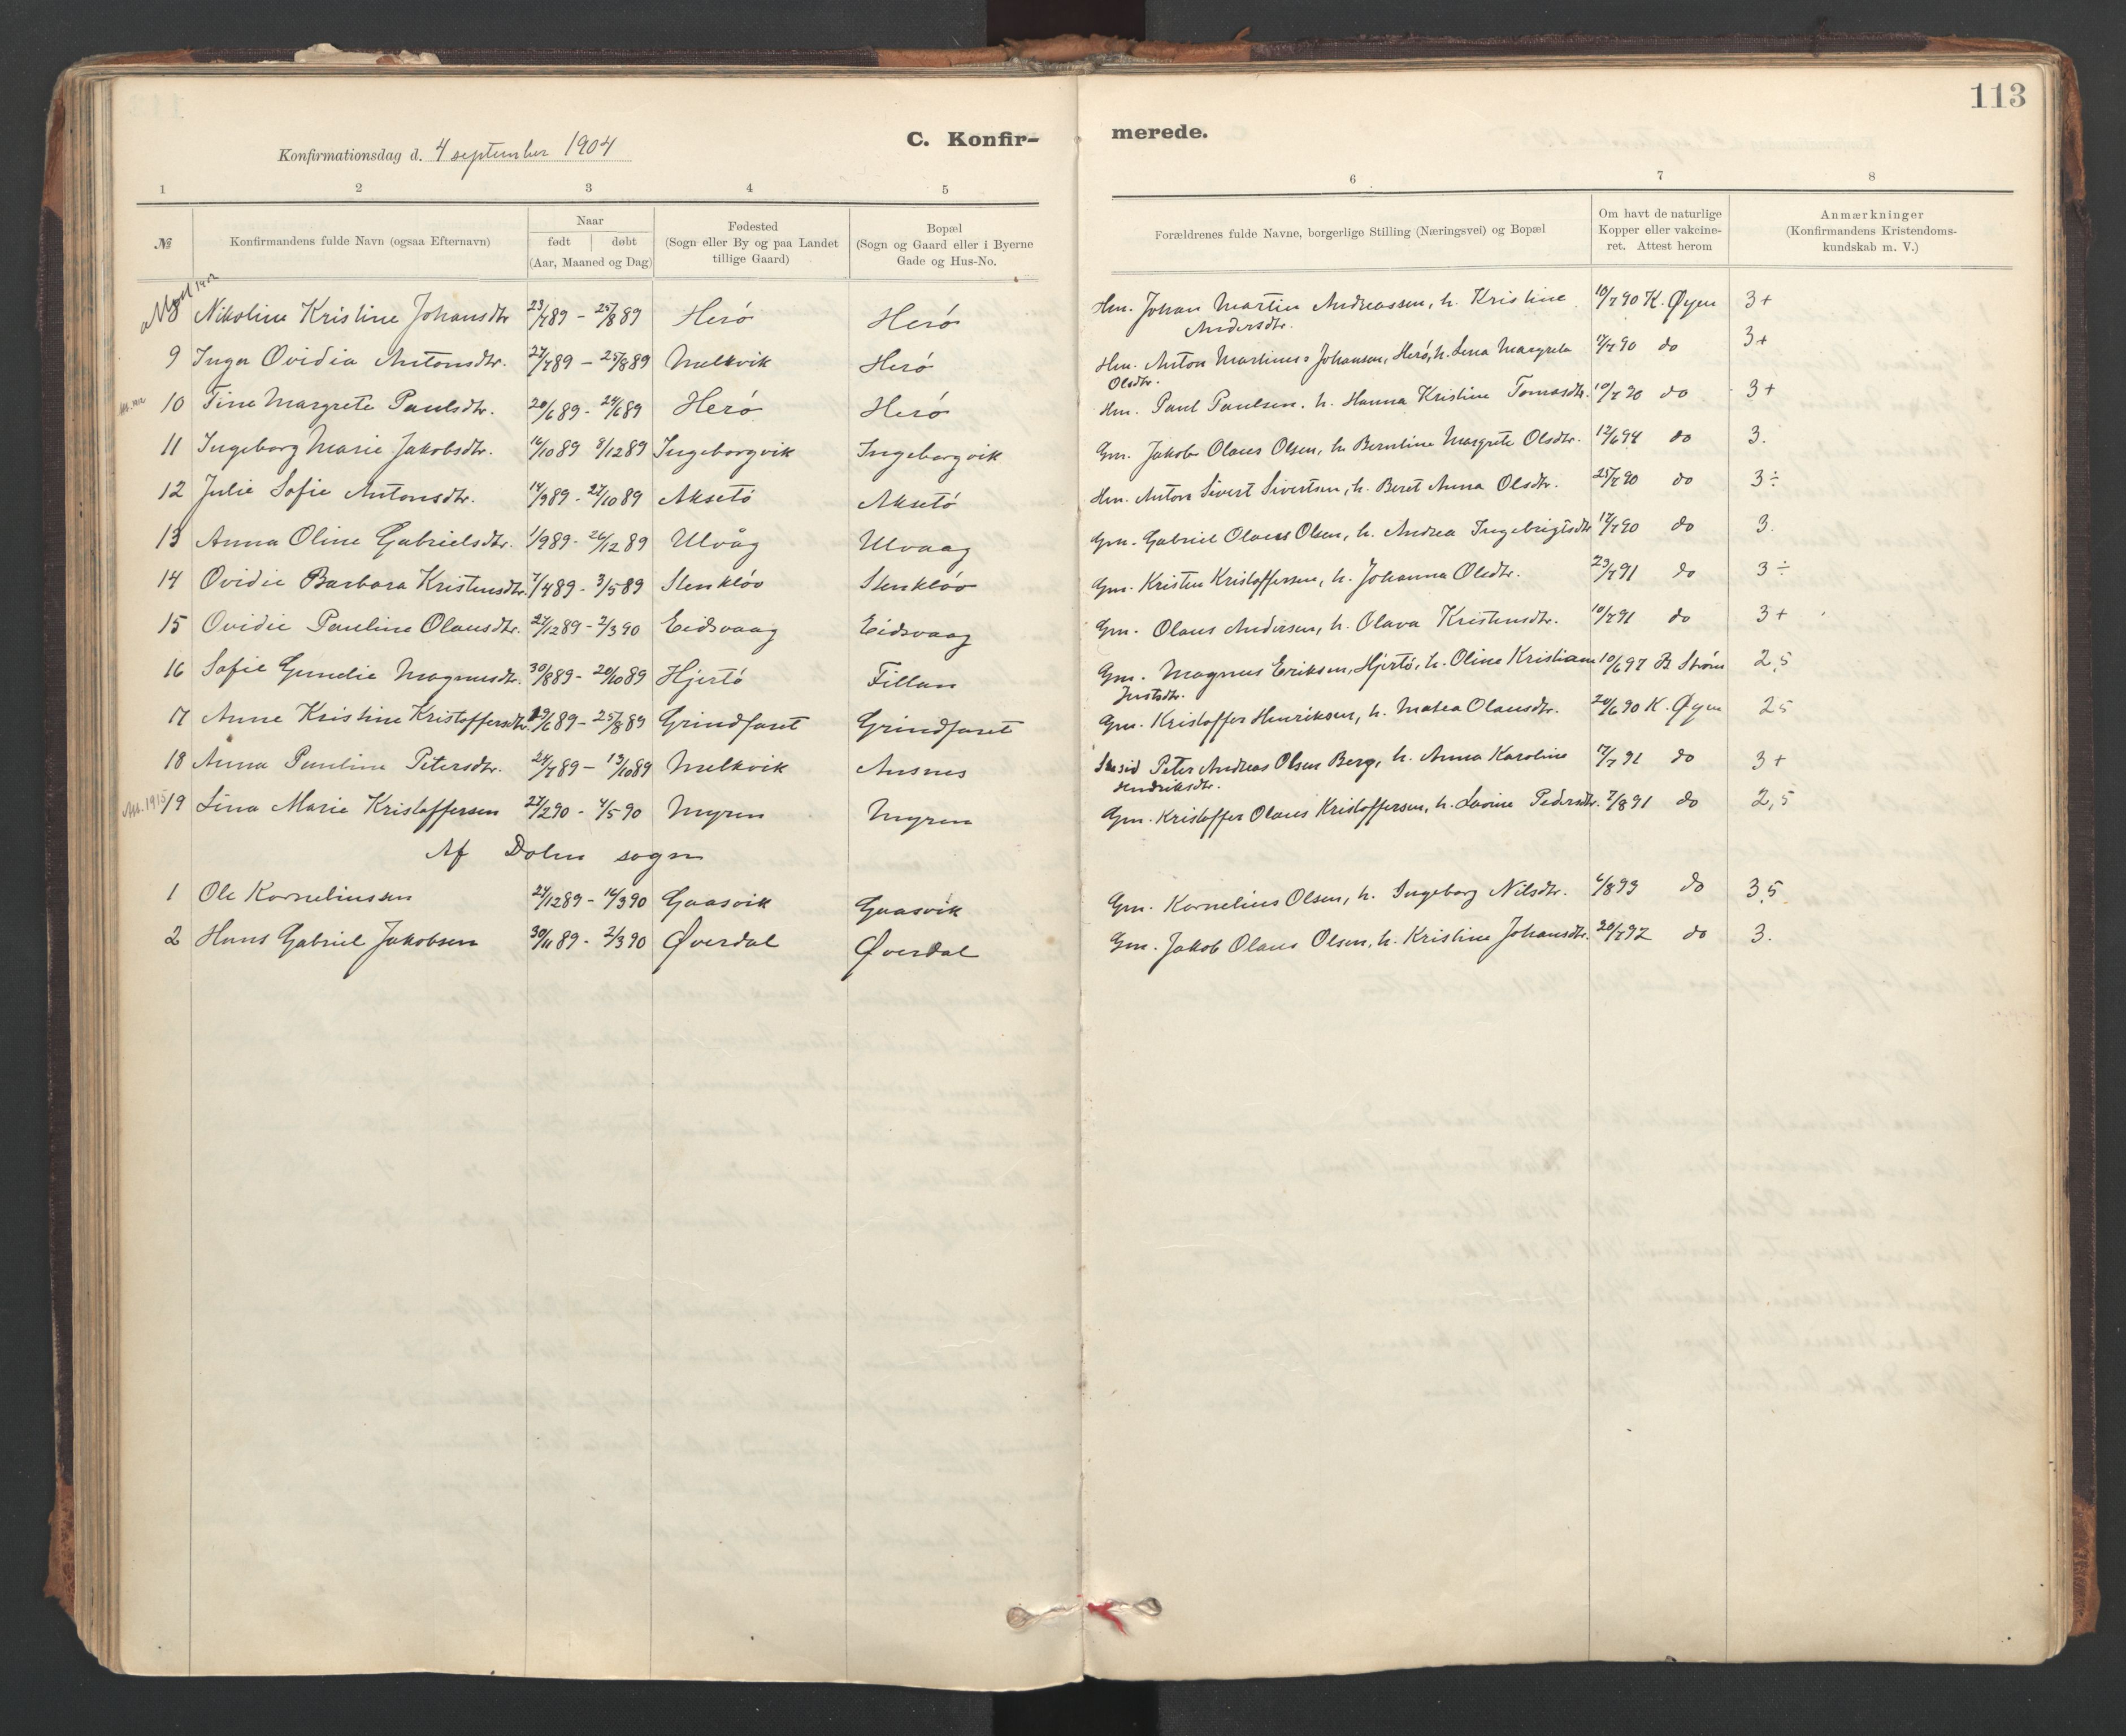 113
C. Konfirmerede.
Konfirmationsdag d. 4 september 1904
1 2 3 4 5 6 7 8
№ | Konfirmandens fulde Navn (ogsaa Efternavn) | Naar født | døbt (Aar, Maaned og Dag) | Fødested (Sogn eller By og paa Landet tillige Gaard) | Bopæl (Sogn og Gaard eller i Byerne Gade og Hus-No. | Forældrenes fulde Navne, borgerlige Stilling (Næringsvei) og Bopæl | Om havt de naturlige Kopper eller vakcineret. Attest herom | Anmærkninger (Konfirmandens Kristendomskundskab m. V.)
8 Nikoline Kristine Johansdtr 23/7 89 - 25/8 89 Herö Herö Hm. Johan Martin Andreassen, h. Kristine 10/7 90 K. Øyen 3+
Andersdtr.
9 Inga Ovidia Antonsdtr. 27/7 89 - 25/8 89 Melkvik Herö Hm. Anton Martinus Johansen, Herö, h. Lena Margreta do 3+
Olsdtr.
10 Tine Margrete Paulsdtr. 20/6 89 - 24/6 89 Herö Herö Hm. Paul Paulsen. h. Hanna Kristine Tomasdtr. 10/7 90 do 3+
11 Ingeborg Marie Jakobsdtr. 16/10 89 8/12 89 Ingeborgvik Ingeborgvik Gm. Jakob Olaus Olsen, h. Berntine Margrete Olsdtr. 12/6 94 do 3.
12 Julie Sofie Antonsdtr. 14/9 89 - 27/10 89 Aksetö Aksetö Hm. Anton Sivert Sivertsen, h. Beret Anna Olsdtr. 25/7 90 do 3÷
13 Anna Oline Gabrielsdtr. 1/9 89 - 26/12 89 Ulvåg Ulvaag Gm. Gabriel Olaus Olsen, h. Andrea Ingebrigtsdtr 17/7 90 do 3.
14 Ovidie Barbara Kristensdtr. 7/4 89 - 3/5 89 Stenklöv Stenklöv Gm. Kristen Kristoffersen, h. Johanna Olsdtr. 23/7 91 do 3÷
15 Ovidie Pauline Olausdtr. 27/12 89 - 2/3 90 Eidsvaag Eidsvaag Gm. Olaus Andersen, h. Olava Kristensdtr. 10/7 91 do 3+
16 Sofie Gundie Magnusdtr. 30/8 89 - 20/10 89 Hjertö Fillan Gm. Magnus Eriksen, Hjertö, h. Oline Kristiane 10/6 97 B Ström 2,5
Justsdtr.
17 Anne Kristine Kristoffersdtr. 19/6 89 - 25/8 89 Grindfaret Grindfaret Gm. Kristoffer Henriksen, h. Matea Olausdtr. 20/6 90 K. Øyen 25
18 Anna Pauline Petersdtr. 24/7 89 - 13/10 89 Melkvik Ansnes Peter Andreas Olsen Berg, h. Anna Karoline 17/7 91 do 3+
Hendriksdtr.
Att. 1915 19 Lina Marie Kristoffersen 27/2 90 - 4/5 90 Myren Myren Gm. Kristoffer Olaus Kristoffersen, h. Lovine Pedersdtr. 7/8 91 do 2,5
Af Dolm sogn
1 Ole Korneliussen 27/12 89 - 16/3 90 Gaasvik Gaasvik Gm. Kornelius Olsen, h. Ingeborg Nilsdtr. 6/8 93 do 3,5
2 Hans Gabriel Jakobsen 30/11 89 - 2/3 90 Øverdal Øverdal Gm. Jakob Olaus Olsen, h. Kristine Johansdtr. 20/7 92 do 3.